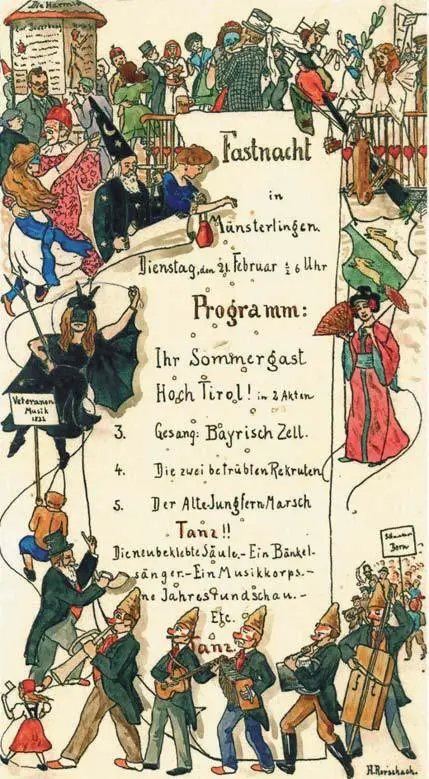 Die Harmo
Zur Bewerbung
Fastnacht
in
Münsterlingen.
Dienstag, den 21. Februar ½ 6 Uhr
Programm:
Ihr Sommergast
Hoch Tirol! in 2 Akten
3. Gesang: Bayrisch Zell.
4. Die zwei betrübten Rekruten
5. Der Alte-Jungfern-Marsch
Tanz!!
Die neubeklebte Säule.- Ein Bänkel-
sänger.- Ein Musikkorps.-
ne Jahresrundschau.-
Etc.
Tanz.
Veteranen
Musik
Bern
H. Rorschach.